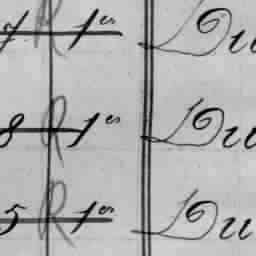 7 R 1er Du
8 R 1er Du
5 R 1er Du